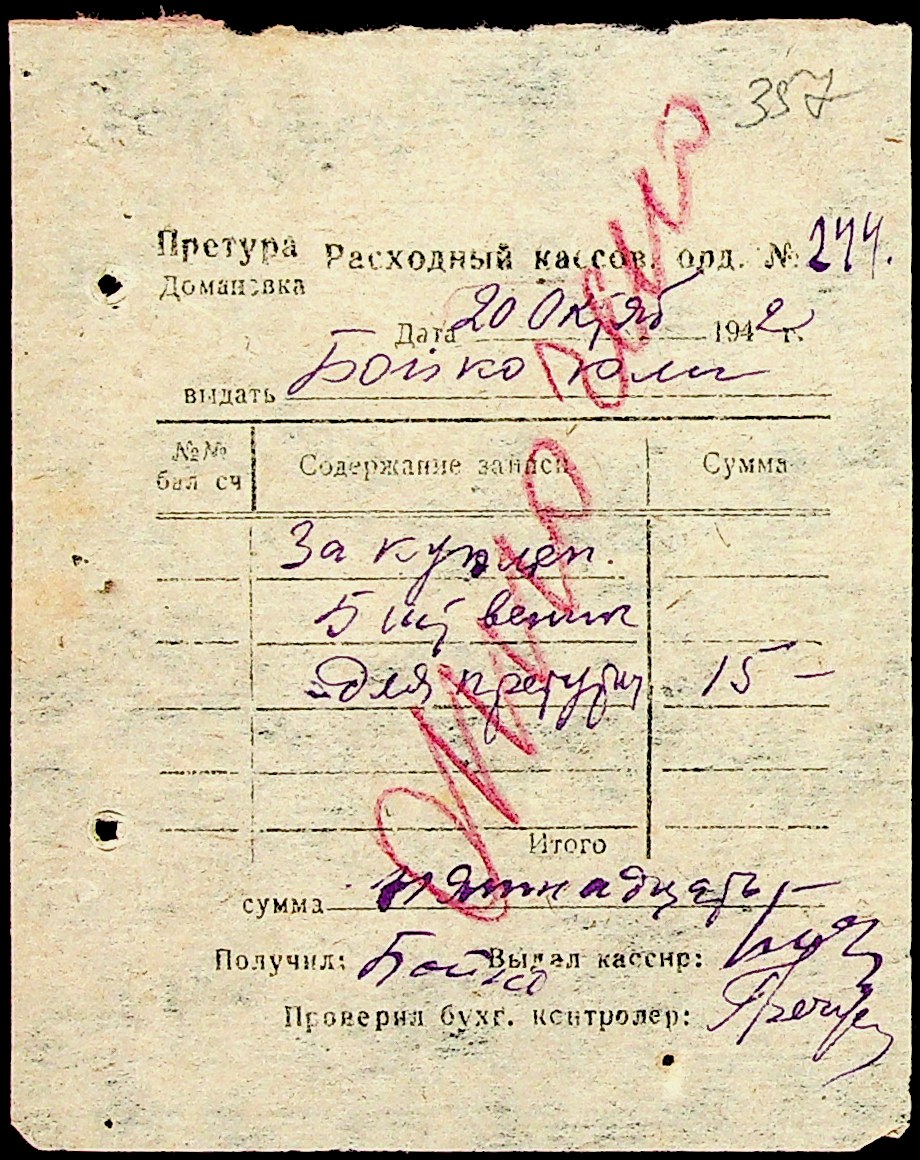 357
Претура Расходный кассов. орд. № 244.
Домановка
Дата 20 Октяб 1942 г.
выдать Бойко Юли
№№ бал сч Содержание записи Сумма
За куплен.
5 шт веник
для претуры 15 —
Итого
сумма пятнадцать —
Получил: Бойко Выдал кассир:
Проверил бухг. контролер: